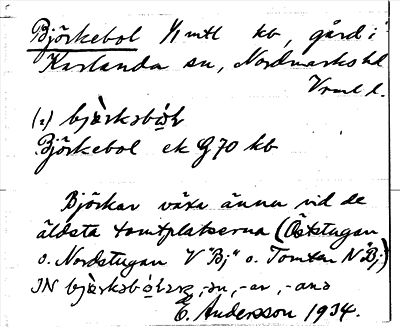 Björkebol 1/1 mtl kb, gård i
Karlanda sn, Nordmarks hd
Vrml l.
Björkebol ek G 70 kb
Björkar växa ännu vid de
äldsta tomtplatserna (Öststugan
o. Nordstugan V "Bj" o. Tomten N "Bj.)
IN -ən, -ar, -ana
E. Andersson 1934.